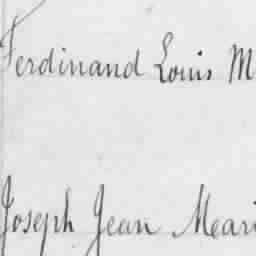 Ferdinand Louis M
Joseph Jean Mari